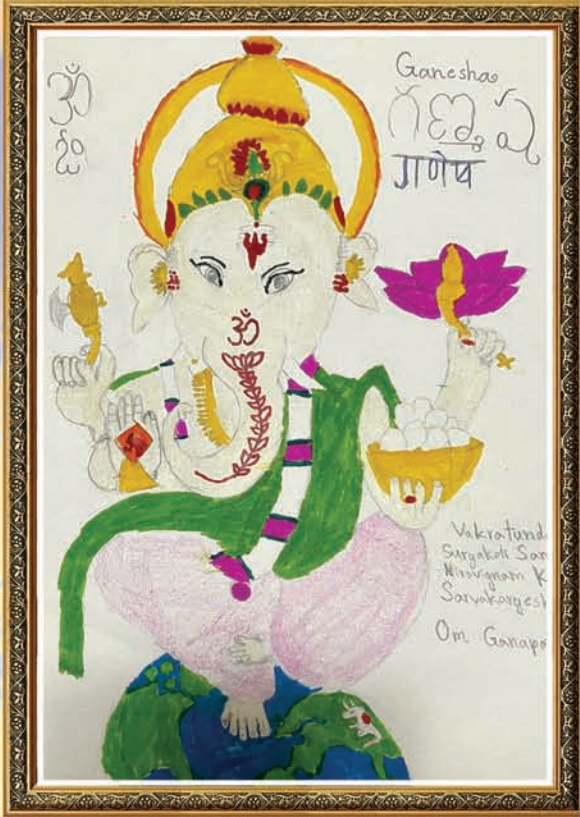 ॐ
Ganesha
गणेष
ॐ
Vakratund
Suryakoti San
Niravignam K
Sarvakaryesh
Om Ganapa